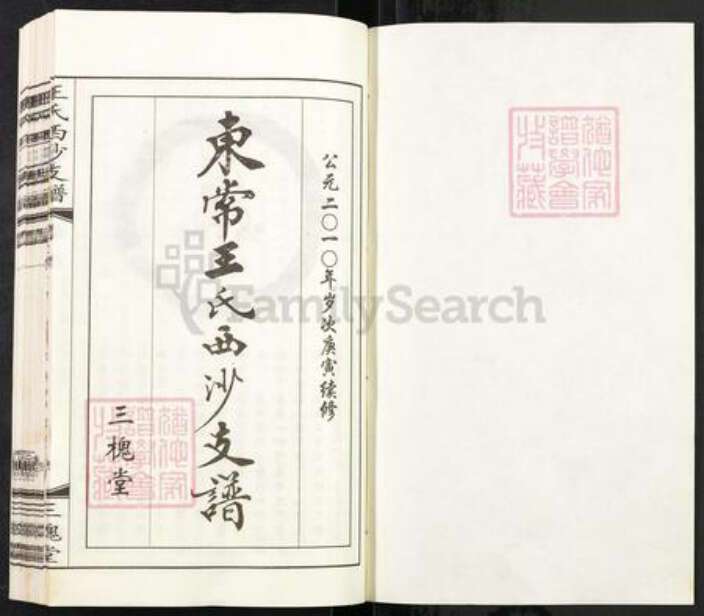 公元二〇一〇年岁次庚寅續修
東常王氏西沙支譜
三槐堂
王氏西沙支譜
三槐堂
猶他家譜學會特藏
猶他家譜學會特藏
FamilySearch